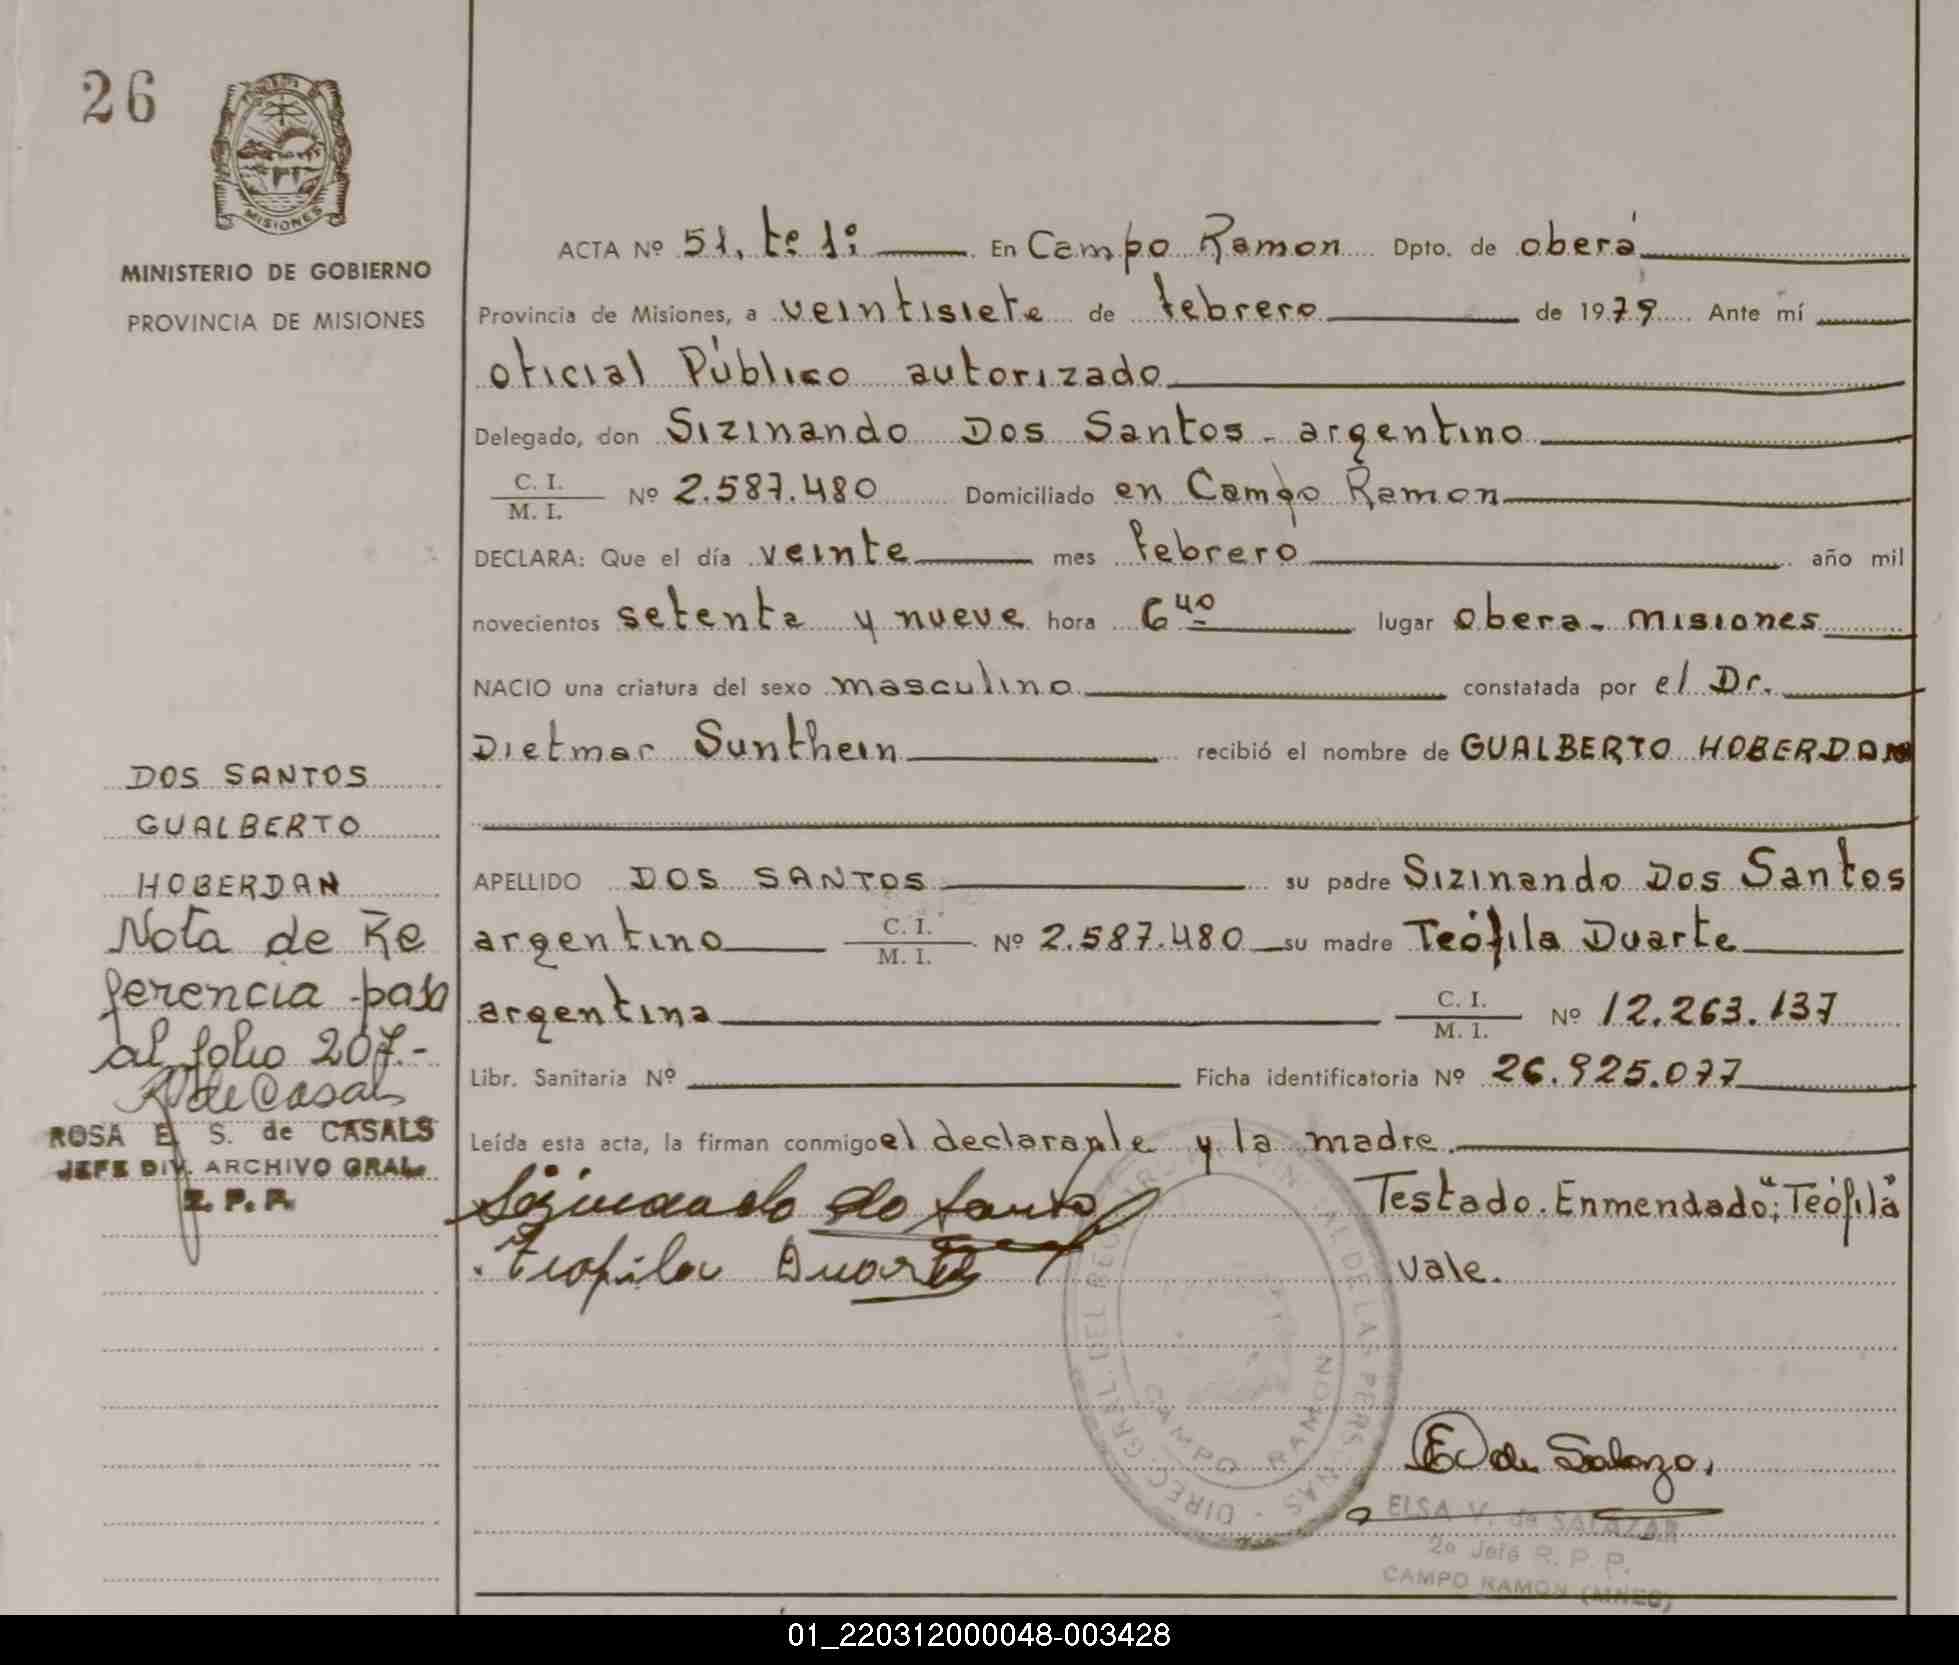 26
MISIONES
MINISTERIO DE GOBIERNO
PROVINCIA DE MISIONES
ACTA Nº 51, tº 1º En Campo Ramon Dpto. de oberá
Provincia de Misiones, a veintisiete de febrero de 1979 Ante mí
oficial Público autorizado
Delegado, don Sizinando Dos Santos - argentino
C. I.
M. I. Nº 2.587.480 Domiciliado en Campo Ramon
DECLARA: Que el día veinte mes febrero año mil
novecientos setenta y nueve hora 6 40 lugar obera - misiones
NACIO una criatura del sexo masculino constatada por el Dr.
Dietmar Sunthein recibió el nombre de GUALBERTO HOBERDAN
APELLIDO DOS SANTOS su padre Sizinando Dos Santos
argentino C. I.
M. I. Nº 2.587.480 su madre Teófila Duarte
argentina C. I.
M. I. Nº 12.263.137
Libr. Sanitaria Nº Ficha identificatoria Nº 26.925.077
Leída esta acta, la firman conmigo el declarante y la madre.
Sizinando do Santo
Teofila Duarte
Testado. Enmendado; "Teófila"
vale.
DIREC. GREL. DEL REGTR. PROVINCIAL DE LAS PERSONAS -
CAMPO RAMON
E de Salazar
ELSA V. de SALAZAR
2º Jefe R. P. P.
CAMPO RAMON (MNES)
DOS SANTOS
GUALBERTO
HOBERDAN
Nota de Re
ferencia pasa
al folio 207.-
R de Casals
ROSA E. S. de CASALS
JEFE DIV. ARCHIVO GRAL.
R. P. P.
01_220312000048-003428